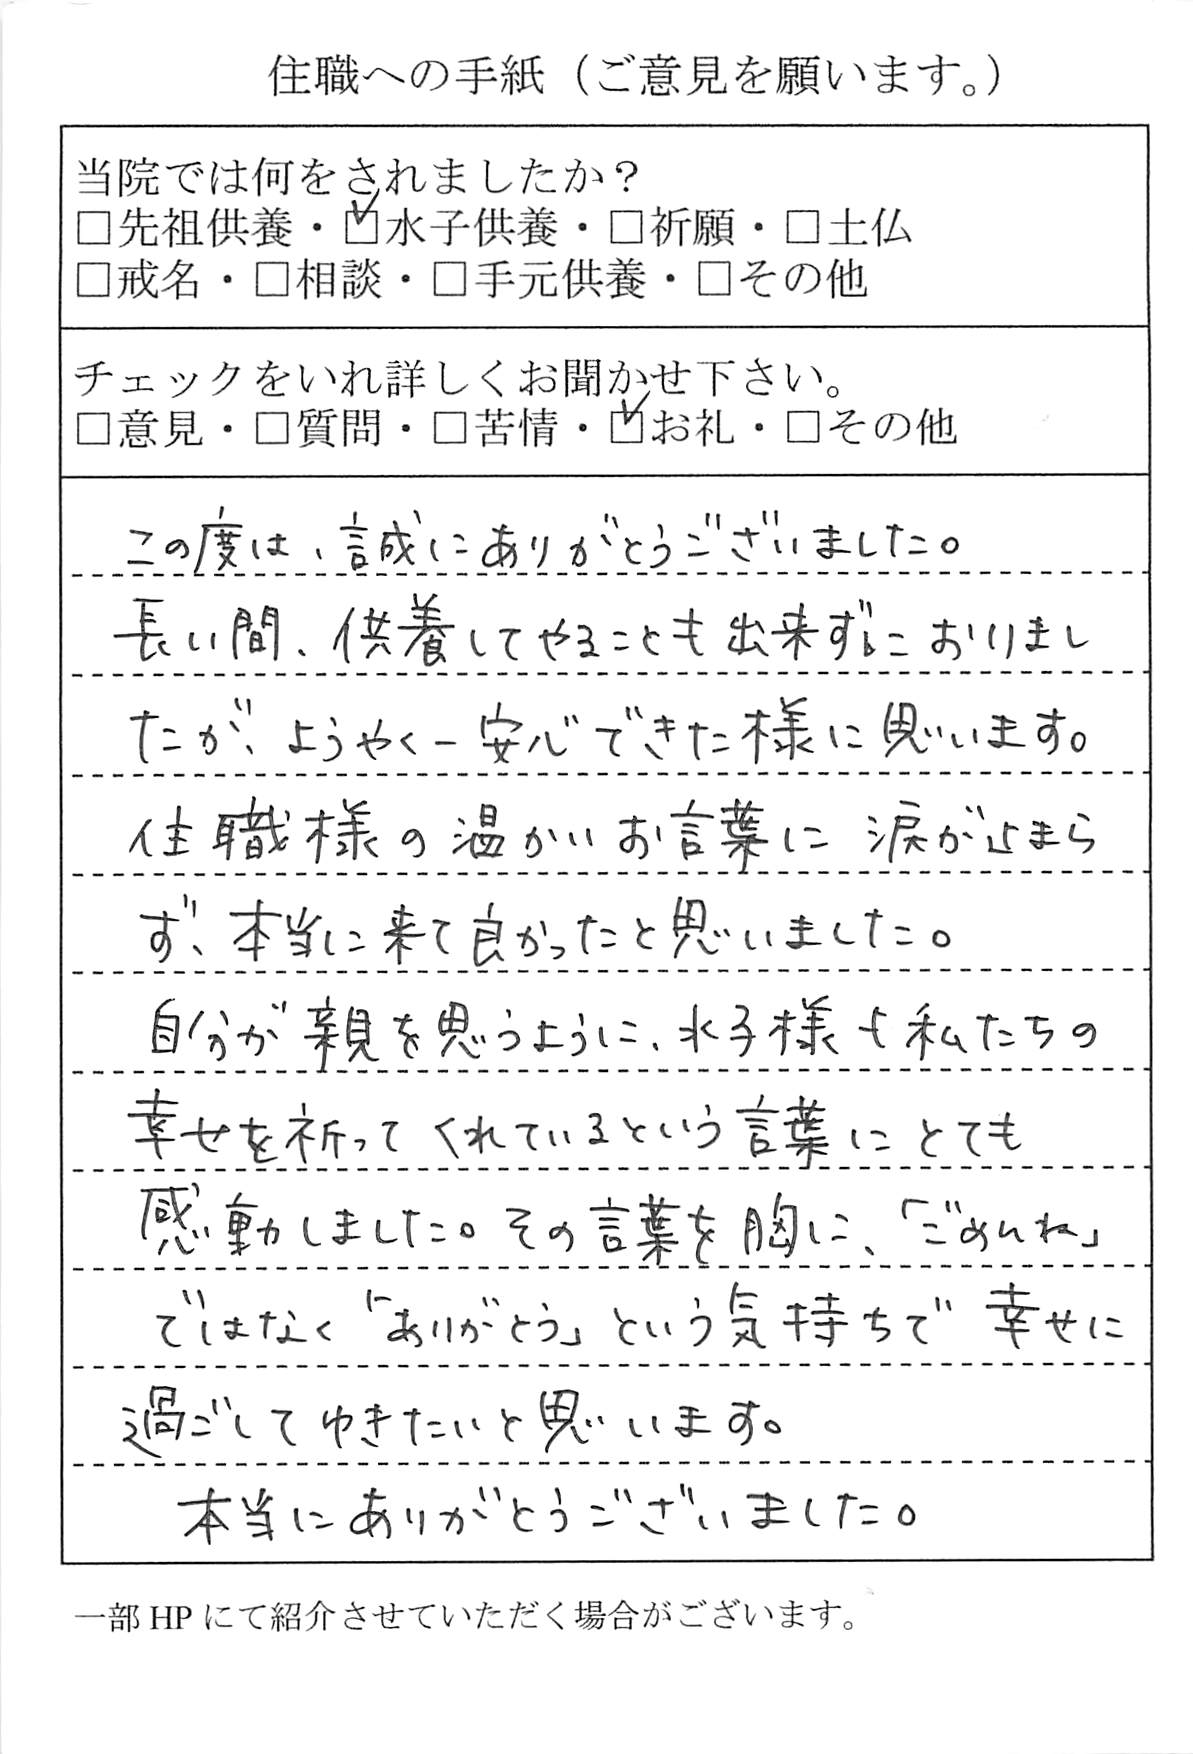 住職への手紙（ご意見を願います。）
当院では何をされましたか？
□先祖供養・☑水子供養・□祈願・□土仏
□戒名・□相談・□手元供養・□その他
チェックをいれ詳しくお聞かせ下さい。
□意見・□質問・□苦情・☑お礼・□その他
この度は、誠にありがとうございました。
長い間、供養してやることも出来ずにおりまし
たが、ようやく一安心できた様に思います。
住職様の温かいお言葉に涙が止まら
ず、本当に来て良かったと思いました。
自分が親を思うように、水子様も私たちの
幸せを祈ってくれているという言葉にとても
感動しました。その言葉を胸に、「ごめんね」
ではなく「ありがとう」という気持ちで幸せに
過ごしてゆきたいと思います。
本当にありがとうございました。
一部HPにて紹介させていただく場合がございます。